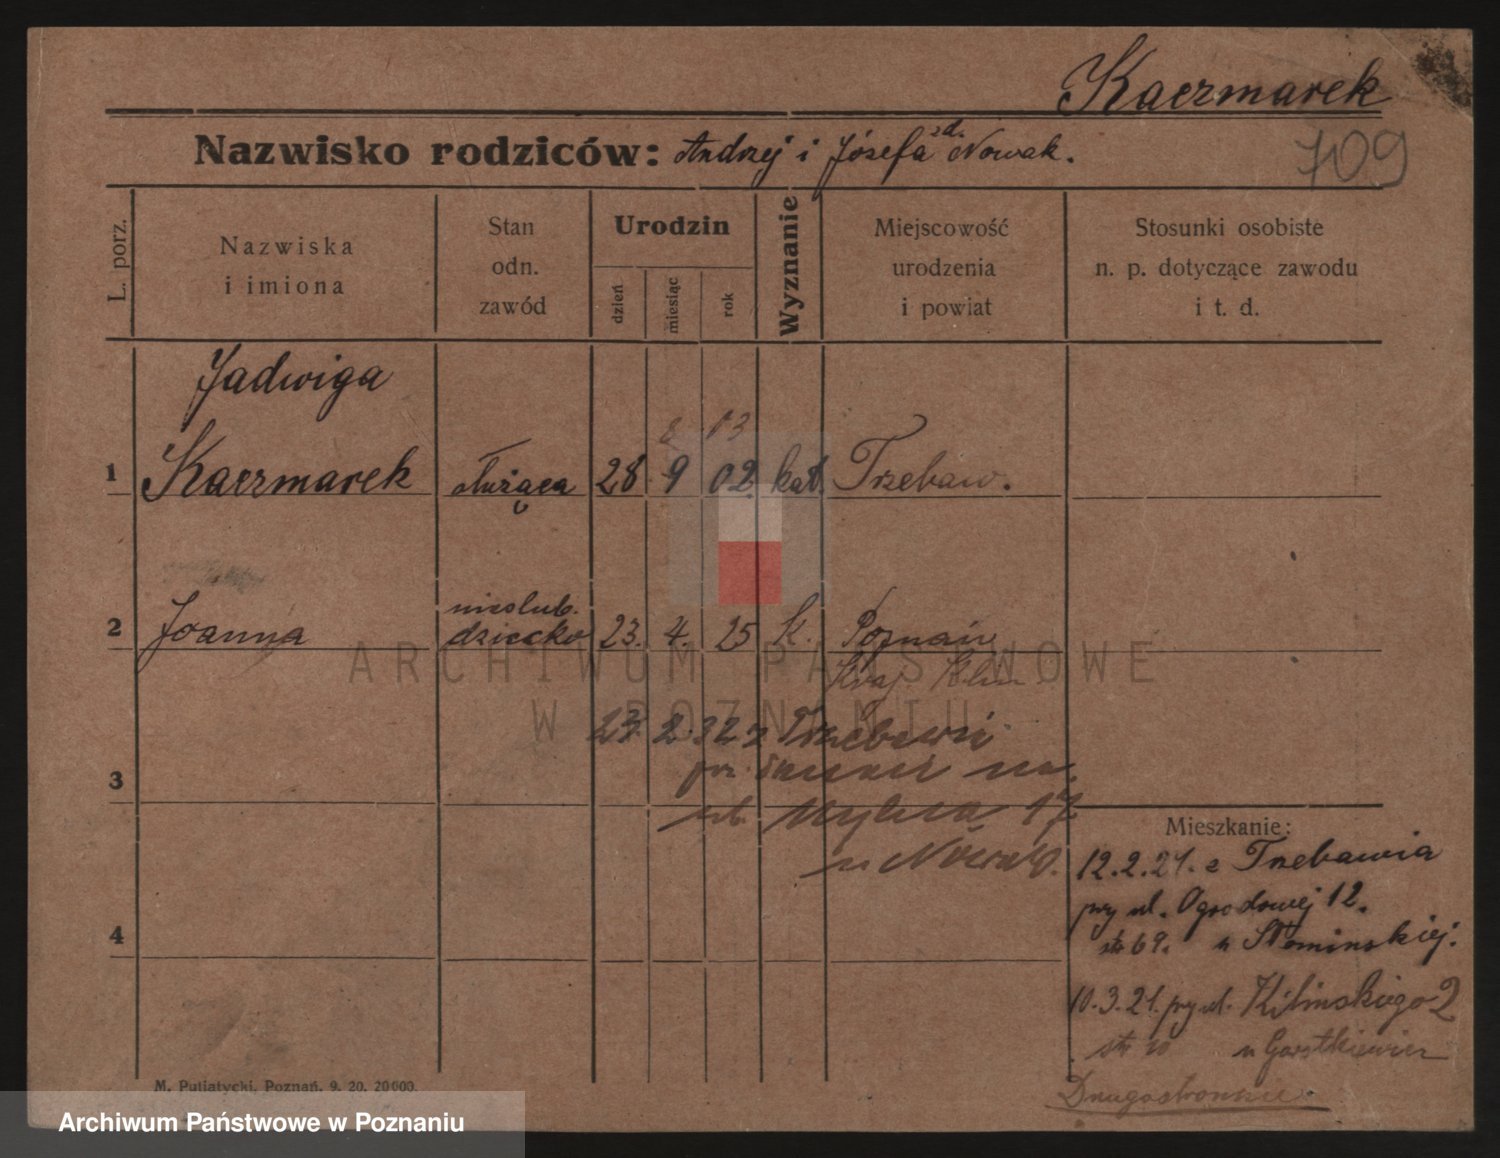 Kaczmarek
709
Nazwisko rodziców: Andrzej i Józefa zd. Nowak.
L. porz.
Nazwiska
i imiona
Stan
odn.
zawód
Urodzin
dzień
miesiąc
rok
Wyznanie
Miejscowość
urodzenia
i powiat
Stosunki osobiste
n. p. dotyczące zawodu
i t. d.
Jadwiga
03
1 Kaczmarek służąca 28 9 02 kat. Trzebaw.
nieślub.
2 Joanna dziecko 23. 4. 25 k. Poznań
23. 2. 32 z Trzebawi
3
ul. 17
4
Mieszkanie:
12.2.21. z Trzebawia
przy ul. Ogrodowej 12.
str 69. u Słominskiej.
10.3.21. przy ul. Kilinskiego 2
str u
Drugostronnie
M. Putiatycki, Poznań. 9. 20. 20000.
ARCHIWUM PAŃSTWOWE
W POZNANIU
Archiwum Państwowe w Poznaniu